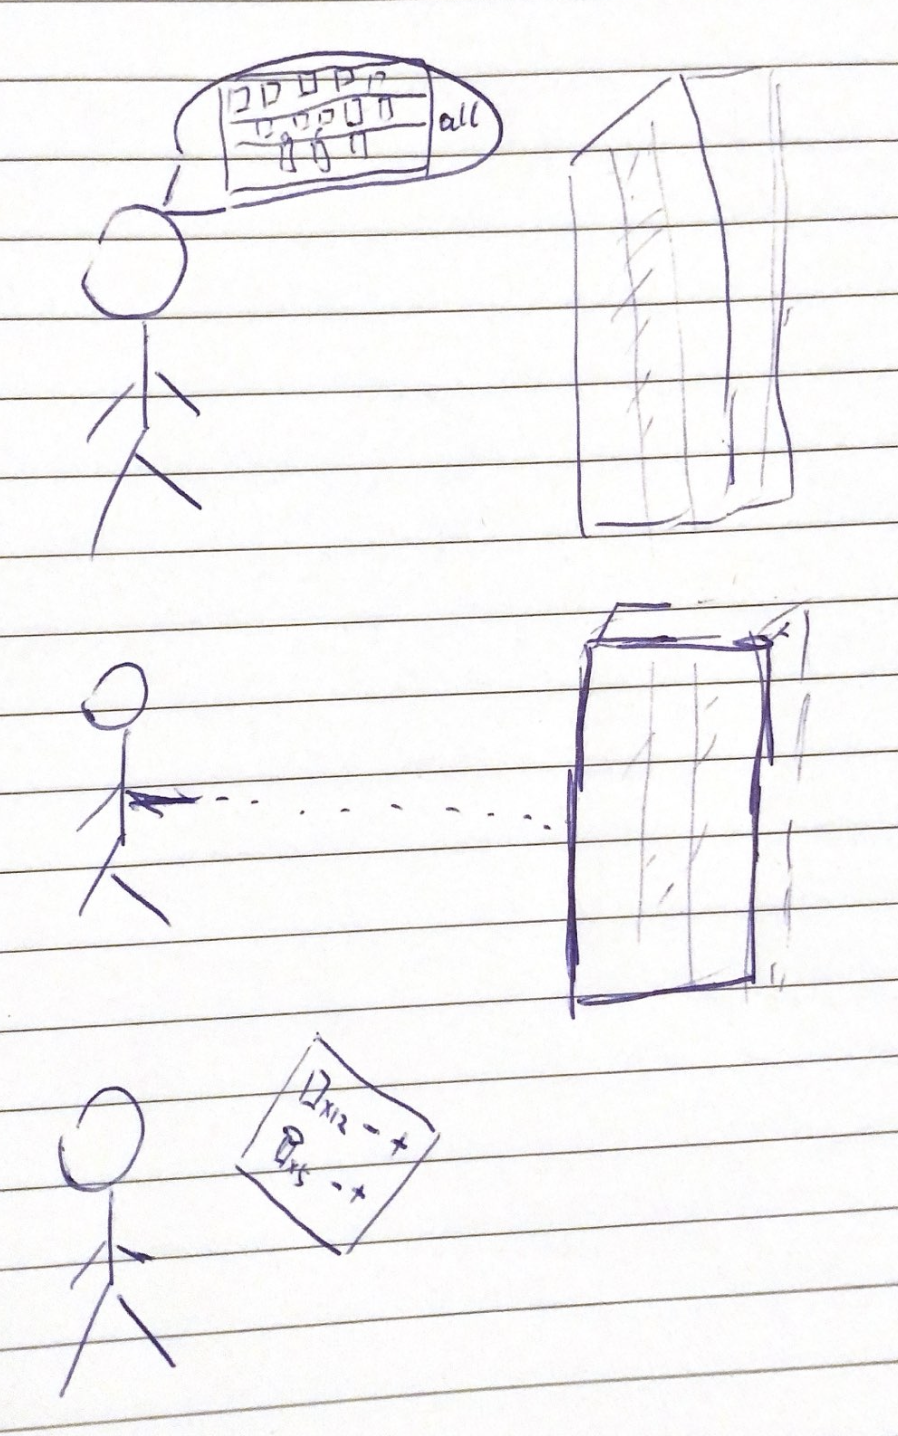 all
x12 - +
x5 - +